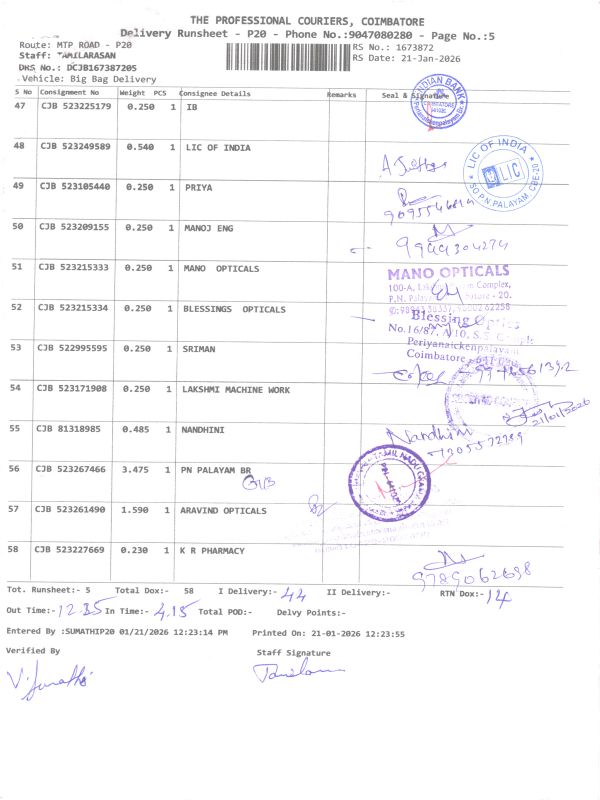 THE PROFESSIONAL COURIERS, COIMBATORE
Delivery Runsheet - P20 - Phone No.:9047080280 - Page No.:5
Route: MTP ROAD - P20
RS No.: 1673872
Staff: TAMILARASAN
RS Date: 21-Jan-2026
DRS No.: DCJB167387205
Vehicle: Big Bag Delivery
S No Consignment No Weight PCS Consignee Details Remarks Seal & Signature
47 CJB 523225179 0.250 1 IB
INDIAN BANK
48 CJB 523249589 0.540 1 LIC OF INDIA
LIC OF INDIA
LIC
SO P.N PALAYAM, CBE-20
49 CJB 523105440 0.250 1 PRIYA
50 CJB 523209155 0.250 1 MANOJ ENG
51 CJB 523215333 0.250 1 MANO OPTICALS
MANO OPTICALS
52 CJB 523215334 0.250 1 BLESSINGS OPTICALS
Blessing
Periyanaickenpalayam
Coimbatore
53 CJB 522995595 0.250 1 SRIMAN
54 CJB 523171908 0.250 1 LAKSHMI MACHINE WORK
21/01/2026
55 CJB 81318985 0.485 1 NANDHINI
Nandhini
56 CJB 523267466 3.475 1 PN PALAYAM BR
TAMIL NADU
57 CJB 523261490 1.590 1 ARAVIND OPTICALS
58 CJB 523227669 0.230 1 K R PHARMACY
9789062698
Tot. Runsheet:- 5 Total Dox:- 58 I Delivery:- 44 II Delivery:- RTN Dox:- 14
Out Time:- 12.35 In Time:- 4.15 Total POD:- Delvy Points:-
Entered By :SUMATHIP20 01/21/2026 12:23:14 PM Printed On: 21-01-2026 12:23:55
Verified By Staff Signature